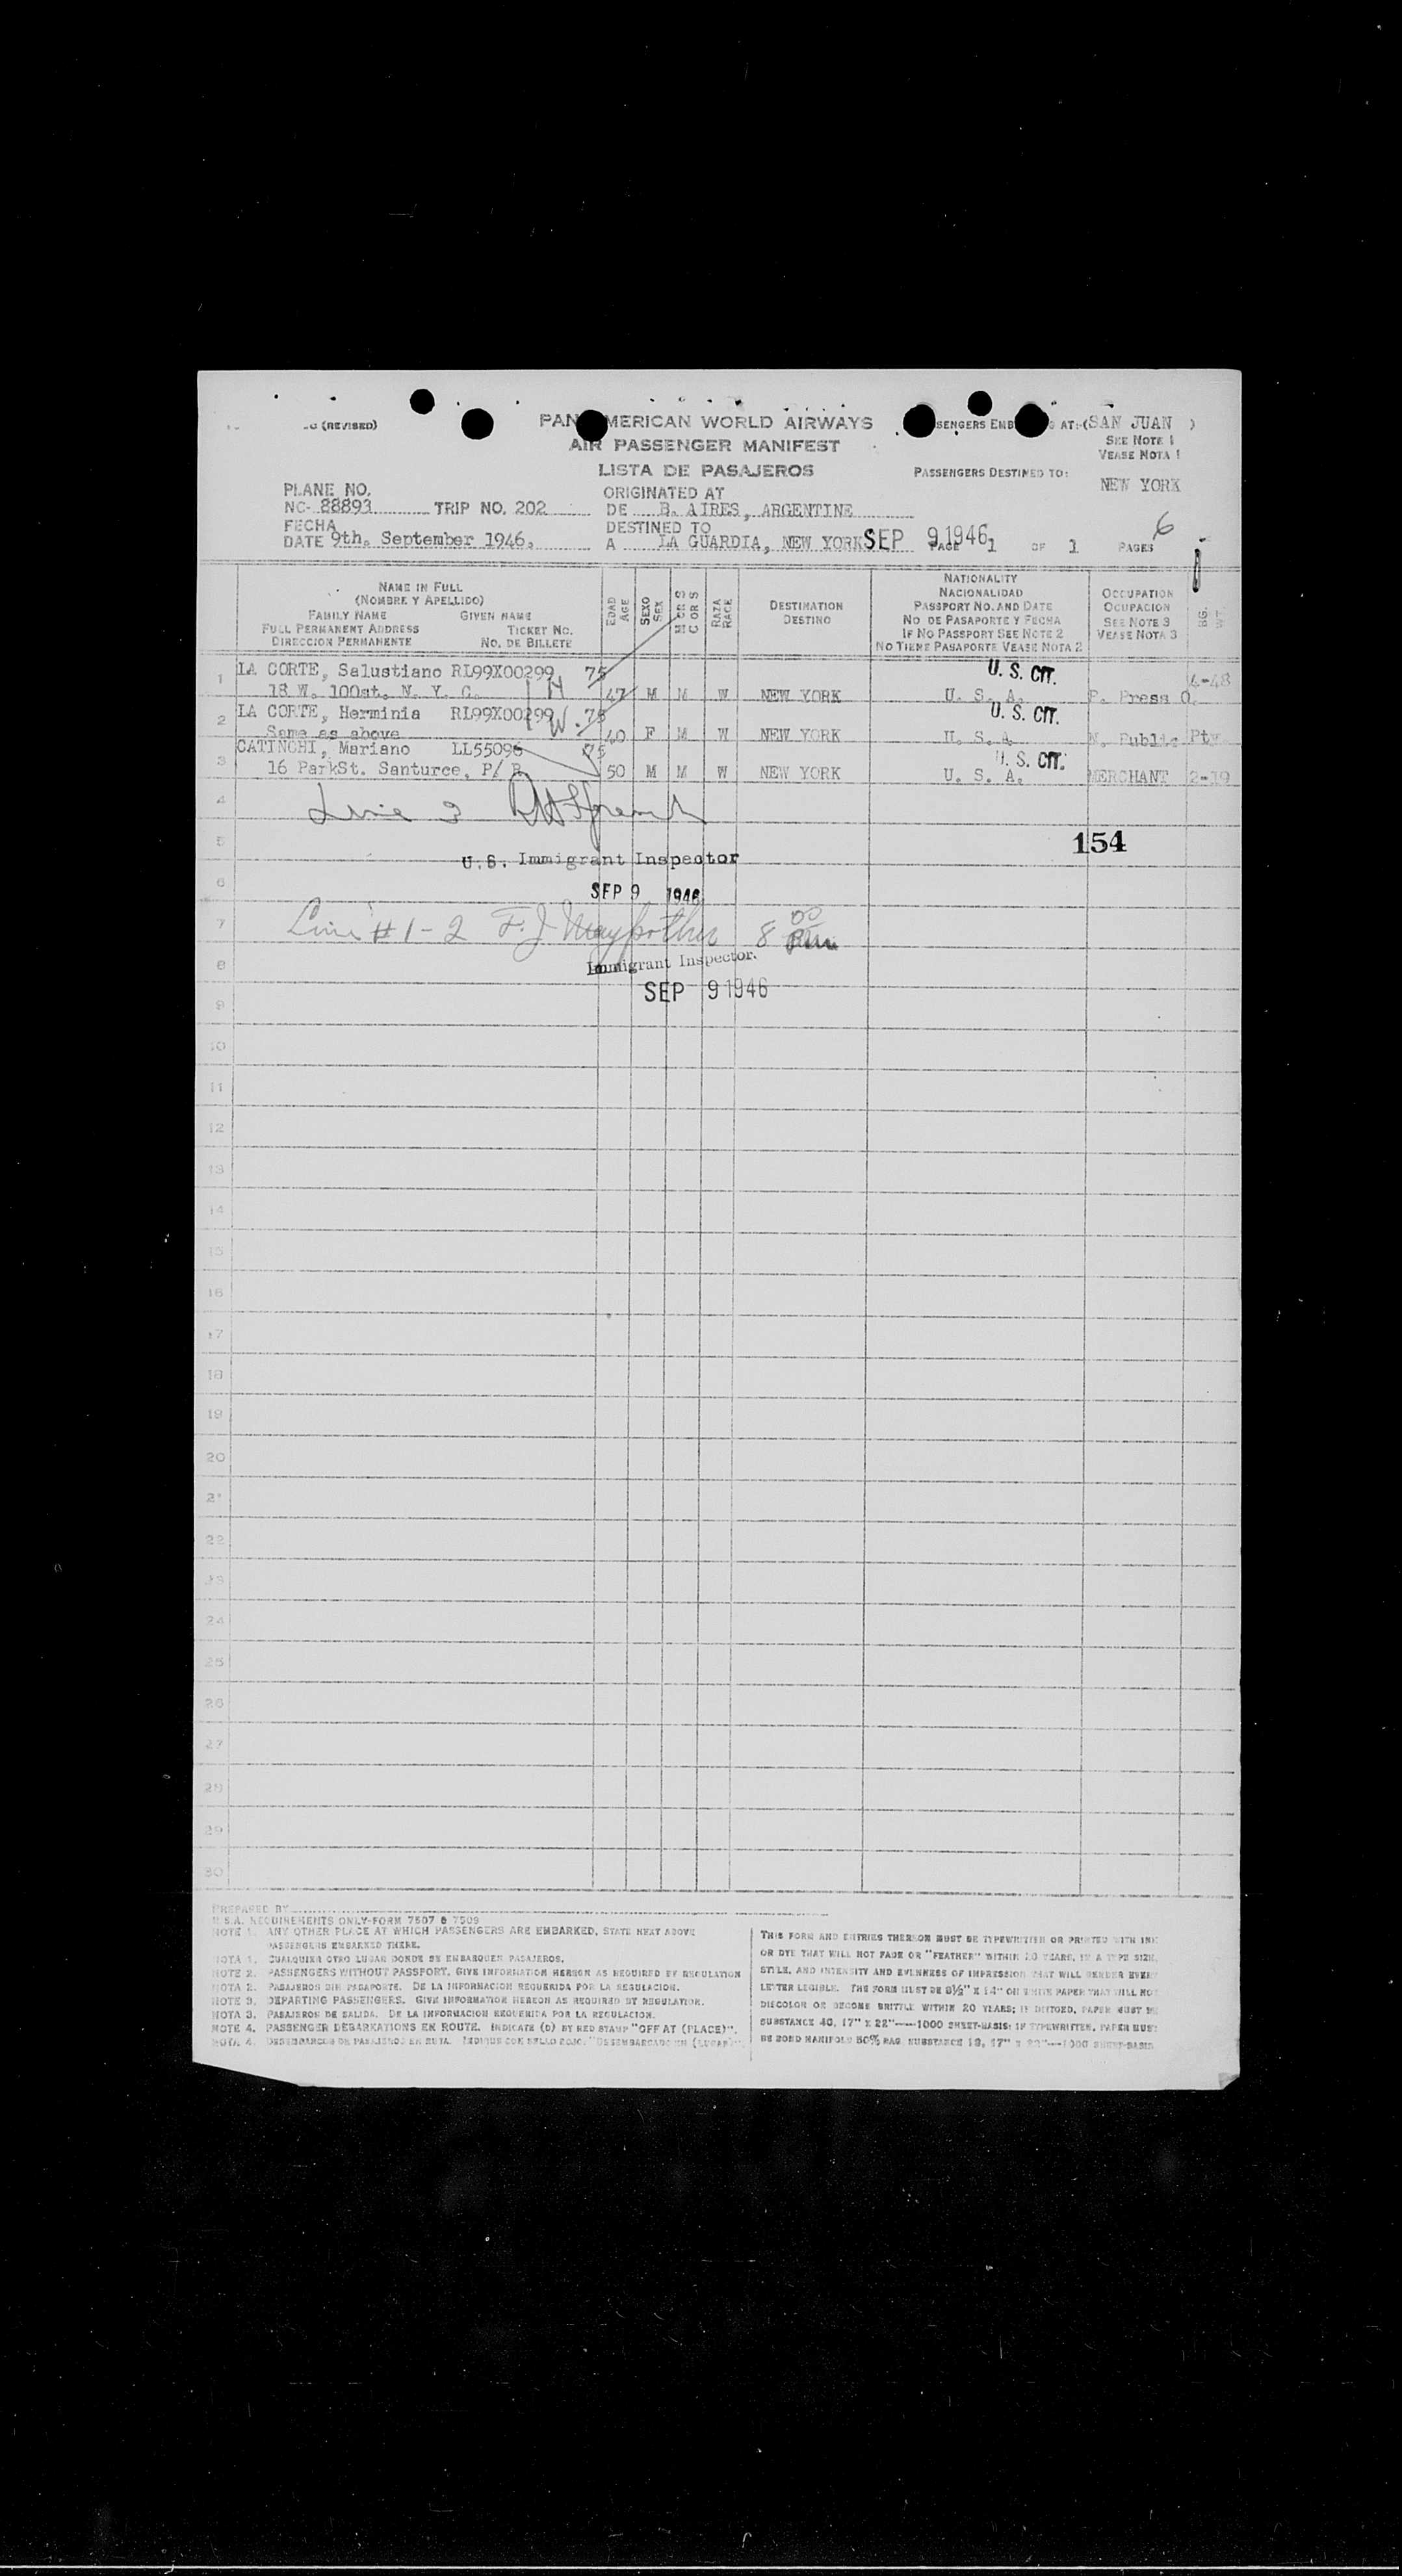 (REVISED)
PAN AMERICAN WORLD AIRWAYS
AIR PASSENGER MANIFEST
LISTA DE PASAJEROS
AT: (SAN JUAN )
SEE NOTE 1
VEASE NOTA 1
PASSENGERS DESTINED TO:
NEW YORK
PLANE NO.
NC- 88893 TRIP NO. 202
FECHA
DATE 9th. September 1946.
ORIGINATED AT
DE B. AIRES, ARGENTINE
DESTINED TO
A LA GUARDIA, NEW YORK SEP 9 1946
PAGE 1 OF 1 PAGES 6
NAME IN FULL
(NOMBRE Y APELLIDO)
FAMILY NAME GIVEN NAME
FULL PERMANENT ADDRESS TICKET NO.
DIRECCION PERMANENTE NO. DE BILLETE
EDAD
AGE
SEXO
SEX
M OR S
C OR S
RAZA
RACE
DESTINATION
DESTINO
NATIONALITY
NACIONALIDAD
PASSPORT NO. AND DATE
NO DE PASAPORTE Y FECHA
IF NO PASSPORT SEE NOTE 2
NO TIENE PASAPORTE VEASE NOTA 2
OCCUPATION
OCUPACION
SEE NOTE 3
VEASE NOTA 3
1 LA CORTE, Salustiano RL99X00299 75 U. S. CIT. 4-48
18 W. 100st. N. Y. C. H 47 M M W NEW YORK U. S. A. P. Press O.
2 LA CORTE, Herminia RL99X00299 W. 75 U. S. CIT.
Same as above 40 F M W NEW YORK U. S. A. N. Public Pty.
3 CATINCHI, Mariano LL55096 75 U. S. CIT.
16 ParkSt. Santurce, P/ R. 50 M M W NEW YORK U. S. A. MERCHANT 2-19
4 Line 3
5 154
U.S. Immigrant Inspector
6 SEP 9 1946
7 Line #1-2 F. J. 8 00
8 Immigrant Inspector.
SEP 9 1946
9
10
11
12
13
14
15
16
17
18
19
20
21
22
23
24
25
26
27
28
29
30
PREPARED BY
U.S.A. REQUIREMENTS ONLY-FORM 7507 & 7509
NOTE 1. ANY OTHER PLACE AT WHICH PASSENGERS ARE EMBARKED, STATE NEXT ABOVE
PASSENGERS EMBARKED THERE.
NOTA 1. CUALQUIER OTRO LUGAR DONDE SE EMBARQUEN PASAJEROS.
NOTE 2. PASSENGERS WITHOUT PASSPORT, GIVE INFORMATION HEREON AS REQUIRED BY REGULATION
NOTA 2. PASAJEROS SIN PASAPORTE. DE LA INFORMACION REQUERIDA POR LA REGULACION.
NOTE 3. DEPARTING PASSENGERS. GIVE INFORMATION HEREON AS REQUIRED BY REGULATION.
NOTA 3. PASAJEROS DE SALIDA. DE LA INFORMACION REQUERIDA POR LA REGULACION.
NOTE 4. PASSENGER DEBARKATIONS EN ROUTE. INDICATE (D) BY RED STAMP "OFF AT (PLACE)".
NOTA 4. DESEMBARCOS DE PASAJEROS EN RUTA. INDIQUE CON SELLO ROJO. "DESEMBARCADO EN (LUGAR)".
THIS FORM AND ENTRIES THEREON MUST BE TYPEWRITTEN OR PRINTED WITH INK
OR DYE THAT WILL NOT FADE OR "FEATHER" WITHIN 20 YEARS, IN A TYPE SIZE,
STYLE, AND INTENSITY AND EVENNESS OF IMPRESSION THAT WILL RENDER EVERY
LETTER LEGIBLE. THE FORM MUST BE 8½" X 14" ON WHITE PAPER THAT WILL NOT
DISCOLOR OR BECOME BRITTLE WITHIN 20 YEARS; IF DITTOED, PAPER MUST BE
SUBSTANCE 40, 17" X 22"—1000 SHEET-BASIS; IF TYPEWRITTEN, PAPER MUST
BE BOND MANIFOLD 50% RAG. SUBSTANCE 18, 17" X 22"—1000 SHEET-BASIS